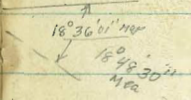 18° 36' 01" Mer
18° 48' 30"
Mea